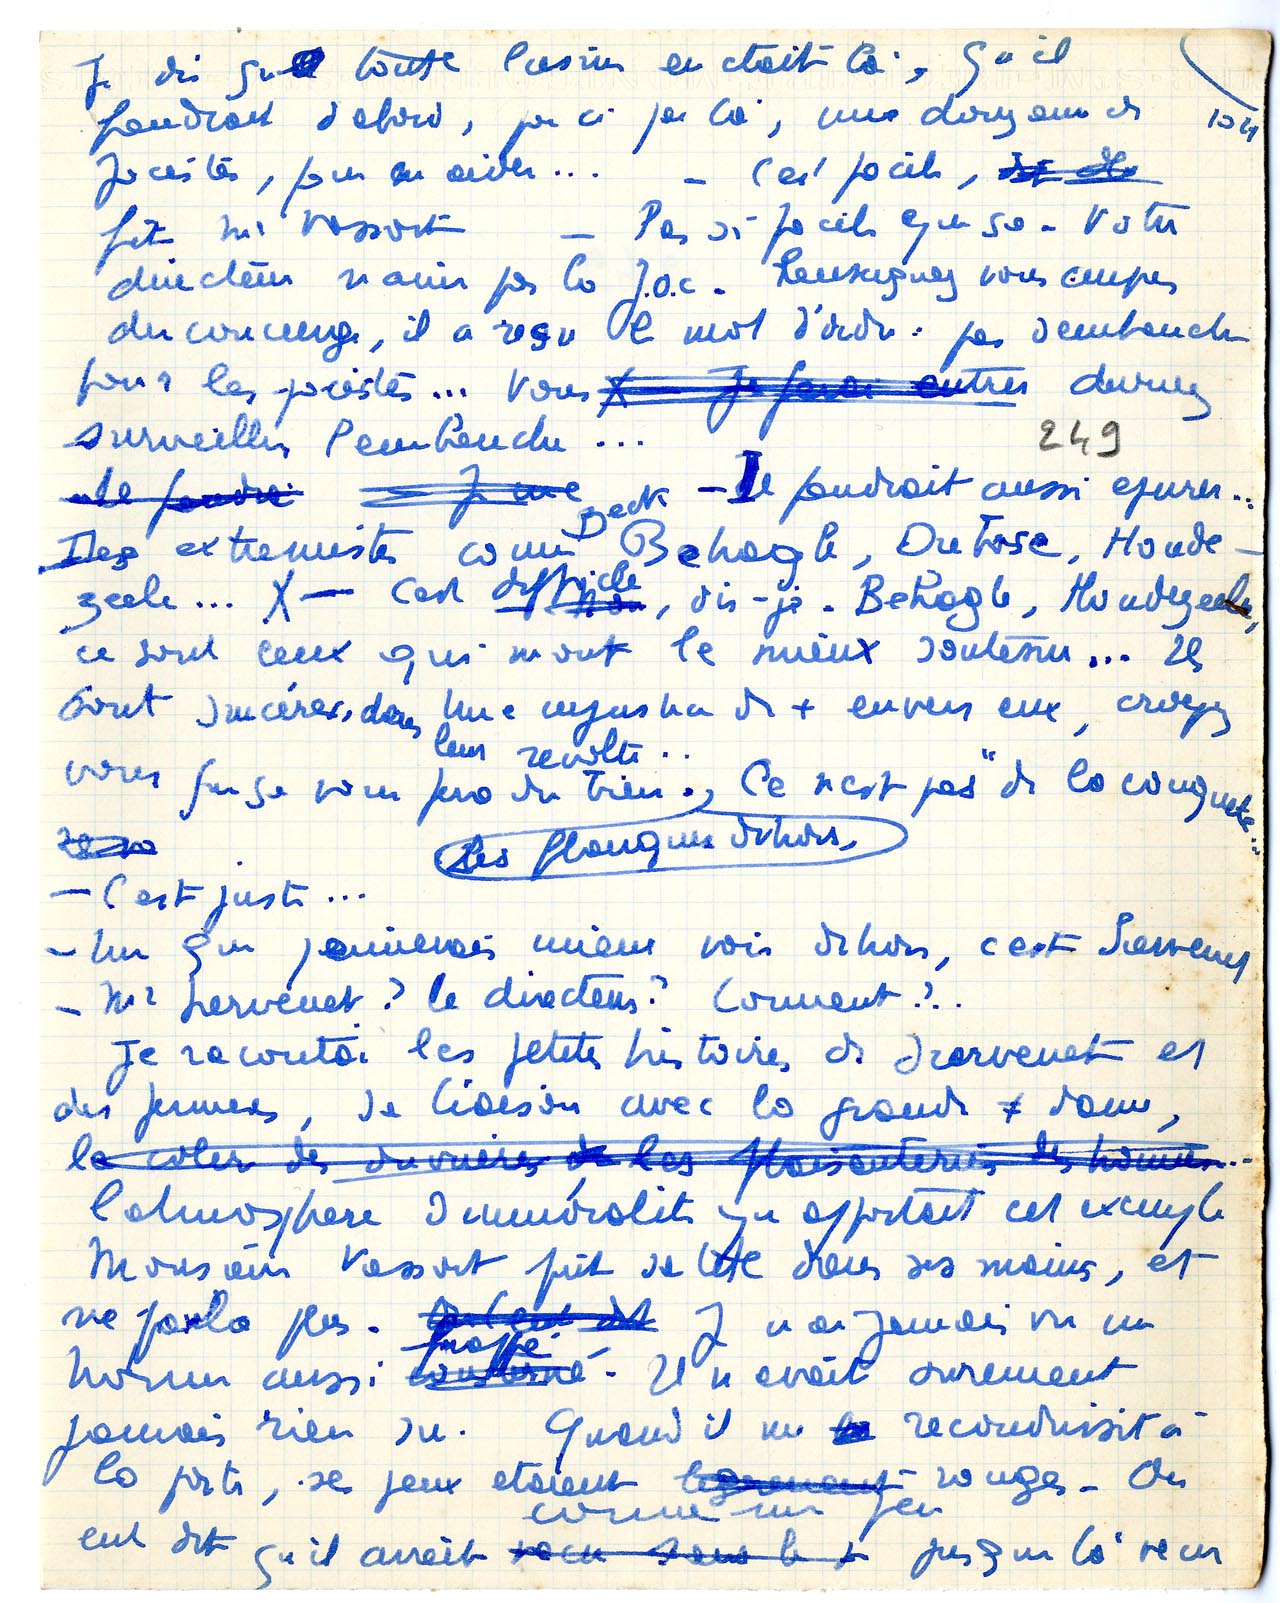 Je dis que toute l'usine en était là, qu'il
faudrait d'abord, par ci par là, une douzaine de
jocistes, pour en aider... – C'est facile,
fit Mr Vassort – Pas si facile que ça – Votre
directeur n'aime pas la J.O.C. Renseignez vous auprès
du concierge, il a reçu le mot d'ordre : pas d'embauche
pour les jocistes... Vous devriez
surveiller l'embauche...
249
– Il faudrait aussi épurer...
Des extrémistes comme Beck Behagle, Dutose, Honde-
zeele... X – C'est difficile, dis-je. Behagle, Hondezeele,
ce sont ceux qui m'ont le mieux soutenu... Ils
sont sincères, dans leur révolte.. Une injustice de + envers eux, croyez
vous que ça vous fera du bien., Ce n'est pas "de la conquête...
Les flanquer dehors,
– C'est juste...
– Un que j'aimerais mieux voir dehors, c'est
– Mr ? le directeur ? Comment ?..
Je racontai les petites histoires de et
des femmes, sa liaison avec la grande dame,
la colère des ouvrières de les plaisanteries des hommes...
l'atmosphère d'immoralité qu'apportait cet exemple
Monsieur Vassort prit sa tête dans ses mains, et
ne parla plus. Je n'ai jamais vu un
homme aussi frappé consterné. Il n'avait surement
jamais rien su. Quand il me reconduisit à
la porte, ses yeux étaient légèrement rouges – On
eut dit qu'il avait comme un jeu jusque là vécu